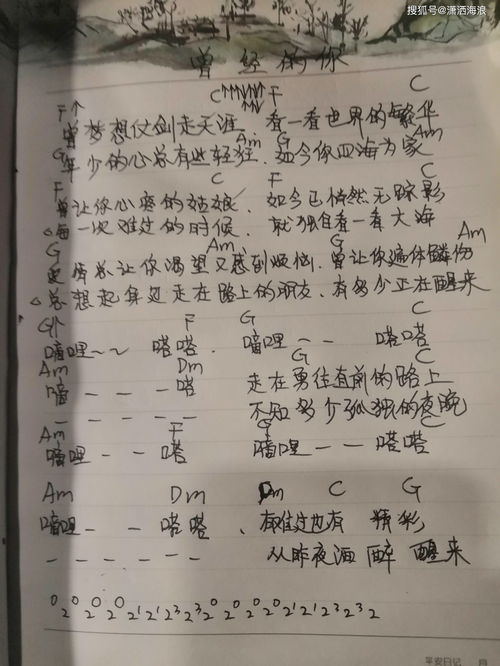 搜狐号@潇洒海浪
曾经的你
C F C
F
曾梦想仗剑走天涯 看一看世界的繁华
G Am G Am
年少的心总有些轻狂 如今你四海为家
F C F C
曾让你心疼的姑娘 如今已悄然无踪影
每一次难过的时候 就独自看一看大海
G Am G Am
爱情总让你渴望又感到烦恼 曾让你遍体鳞伤
总想起身边走在路上的朋友 有多少正在醒来
G F G C
喑哩~~ 嗒嗒. 喑哩-- 嗒嗒
Am Dm G C
喑 - - - 嗒 走在勇往直前的路上
- - - - - - 不知多少孤独的夜晚
Am F G C
喑哩 - - 嗒 喑哩 - - 嗒嗒
Am Dm Dm C G
喑哩 - - 嗒嗒 、有难过也有 精彩
- - - - - - 从昨夜酒 醉 醒来
0 2 0 2 0 2 0 2 1 2 1 2 3 2 3 2 0 2 0 2 0 2 0 2 1 2 1 2 3 2 3 2
平安日记